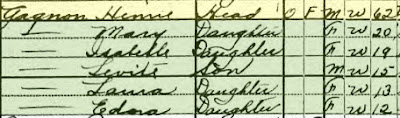 Gagnon Hennie Head O F M W 62
— Mary Daughter F W 20
— Isabelle Daughter F W 19
— Levite Son M W 15
— Laura Daughter F W 13
— Edna Daughter F W 12